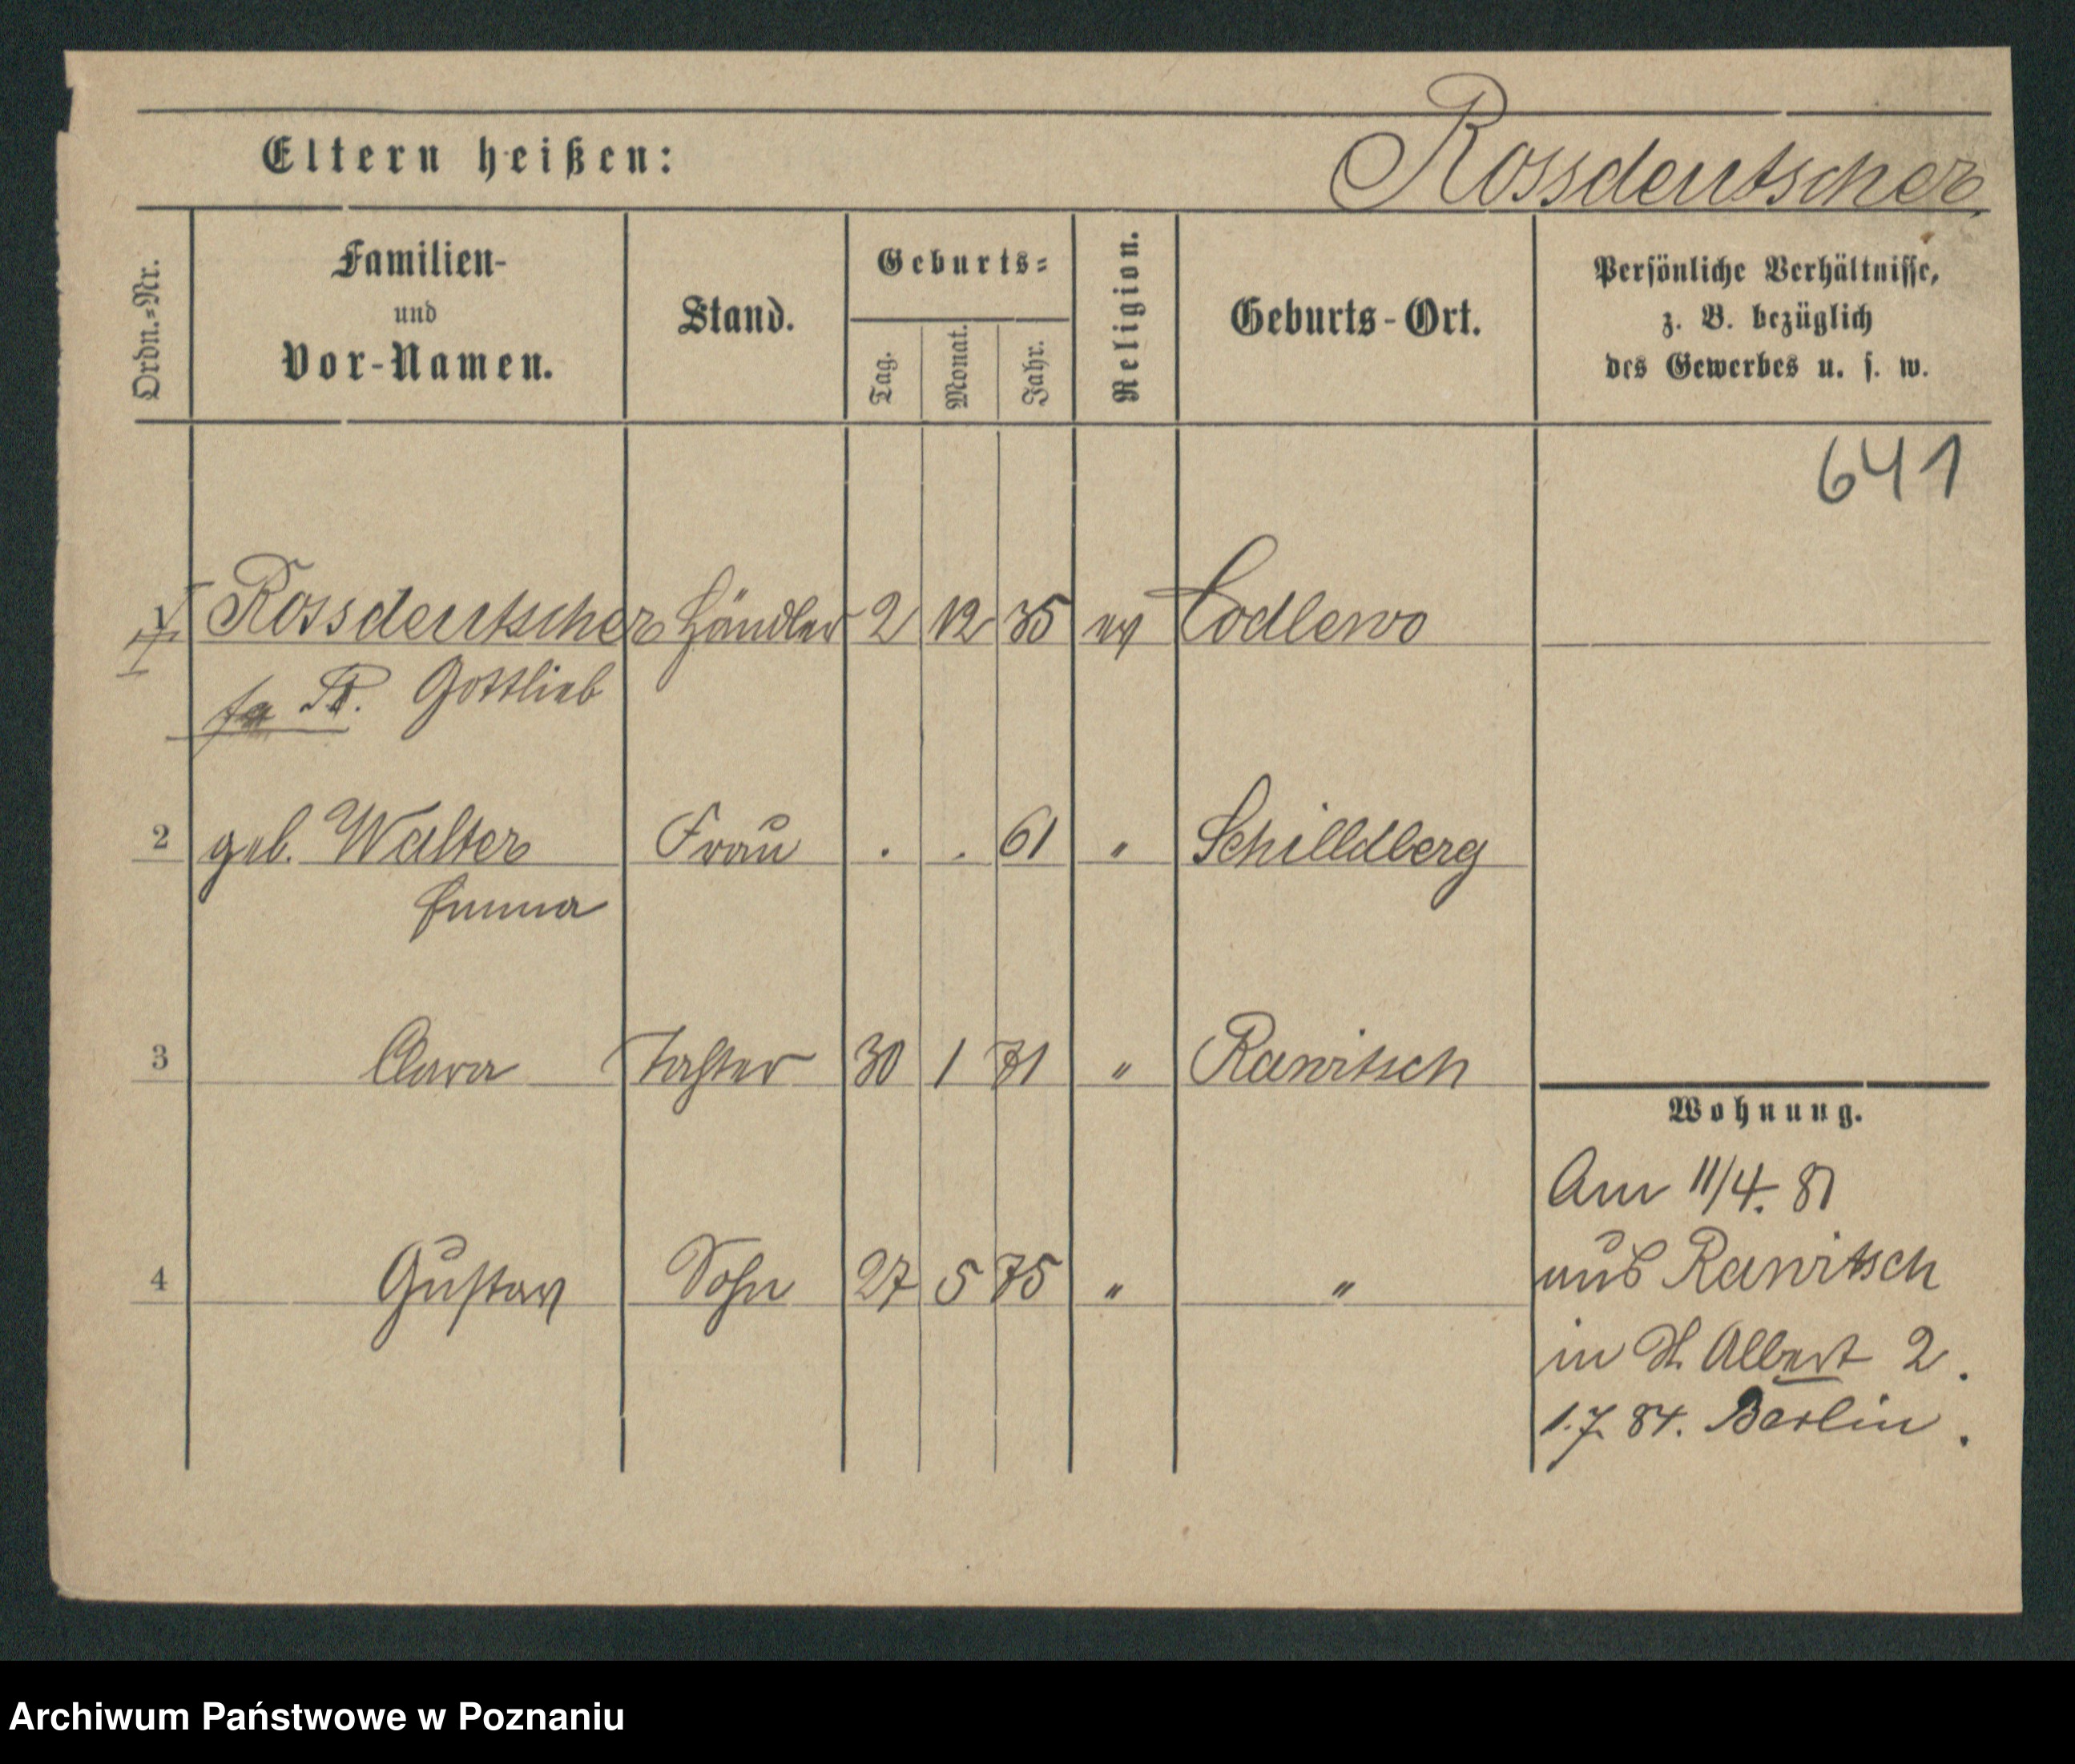 Eltern heißen:
Rossdeutscher
Ordn.-Nr.
Familien-
und
Vor-Namen.
Stand.
Geburts-
Tag.
Monat.
Jahr.
Religion.
Geburts-Ort.
Persönliche Verhältnisse,
z. B. bezüglich
des Gewerbes u. s. w.
641
Rossdeutscher Händler 2 12 35 ev Codlewo
Gottlieb
2 geb. Walter Frau . . 61 " Schilldberg
Emma
3 Clara Tochter 30 1 71 " Rawitsch
Wohnung.
Am 11/4. 81
4 Gustav Sohn 27 5 75 " "
aus Rawitsch
in St. Albert 2.
1.7. 84. Berlin.
Archiwum Państwowe w Poznaniu